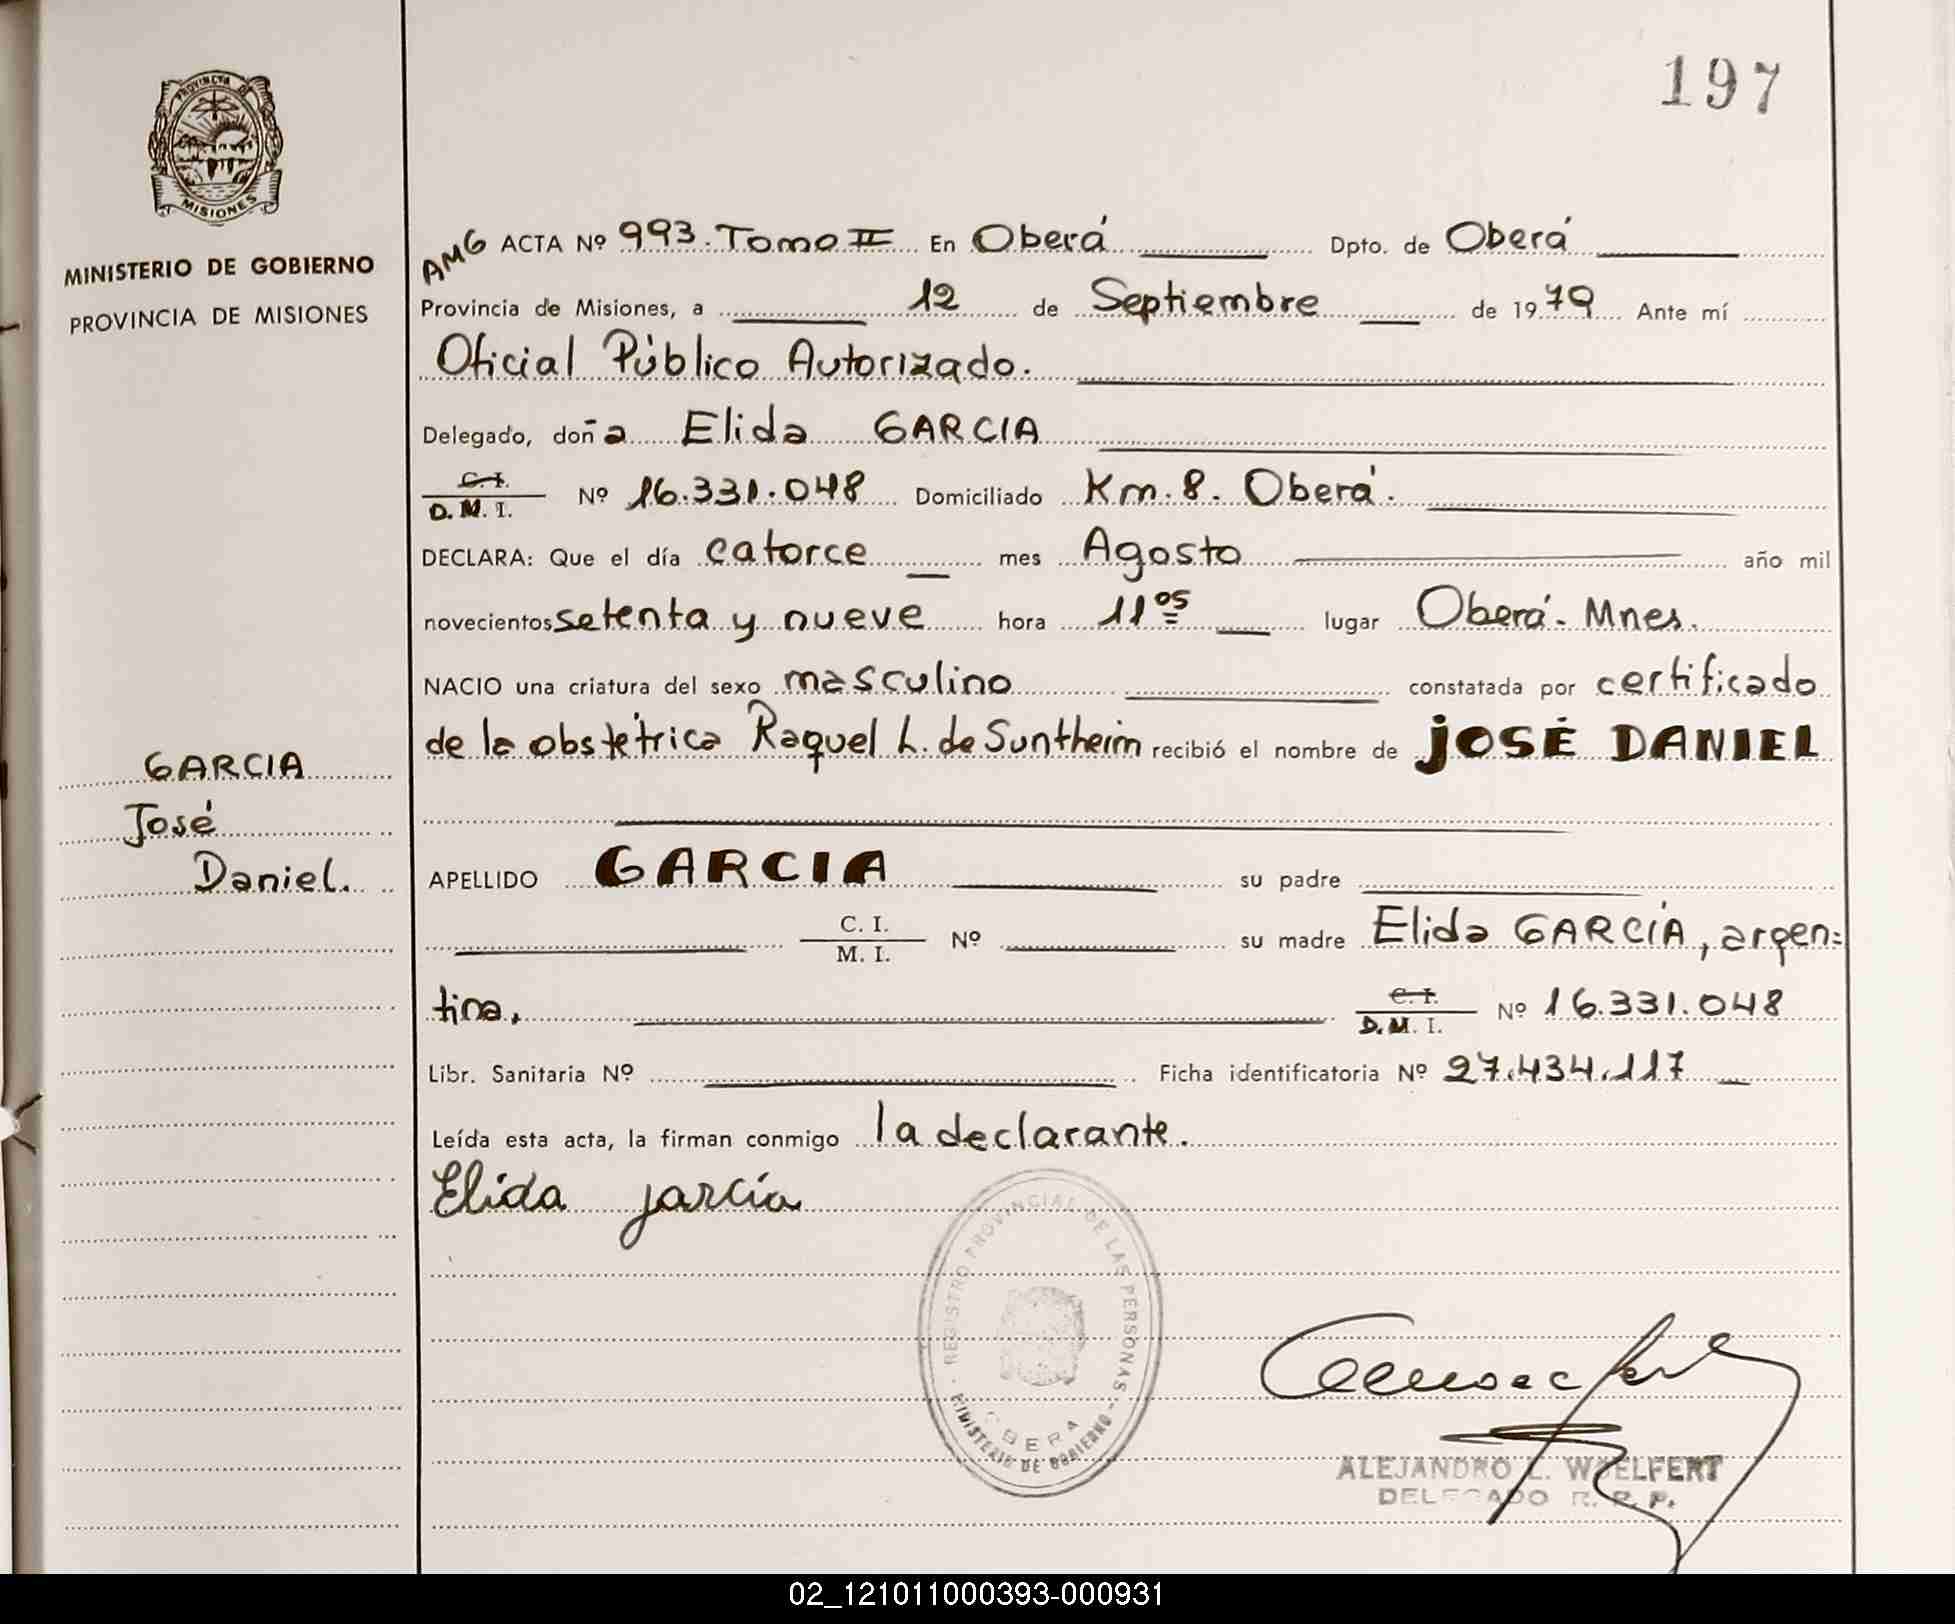 197
PROVINCIA DE
MISIONES
MINISTERIO DE GOBIERNO
PROVINCIA DE MISIONES
AMG ACTA Nº 993. Tomo II En Oberá Dpto. de Oberá
Provincia de Misiones, a 12 de Septiembre de 1979 Ante mí
Oficial Público Autorizado.
Delegado, doña Elida GARCIA
C. I.
D. M. I. Nº 16.331.048 Domiciliado Km. 8. Oberá.
DECLARA: Que el día catorce mes Agosto año mil
novecientos setenta y nueve hora 11 05 lugar Oberá - Mnes.
NACIO una criatura del sexo masculino constatada por certificado
de la obstétrica Raquel L. de Suntheim recibió el nombre de JOSÉ DANIEL
GARCIA
José
Daniel.
APELLIDO GARCIA su padre
C. I.
M. I. Nº su madre Elida GARCÍA, argen=
tina, C. I.
D. M. I. Nº 16.331.048
Libr. Sanitaria Nº Ficha identificatoria Nº 27.434.117
Leída esta acta, la firman conmigo la declarante.
Elida garcía
REGISTRO PROVINCIAL DE LAS PERSONAS
OBERA
MINISTERIO DE GOBIERNO
ALEJANDRO L. WOELFERT
DELEGADO R. P. P.
02_121011000393-000931